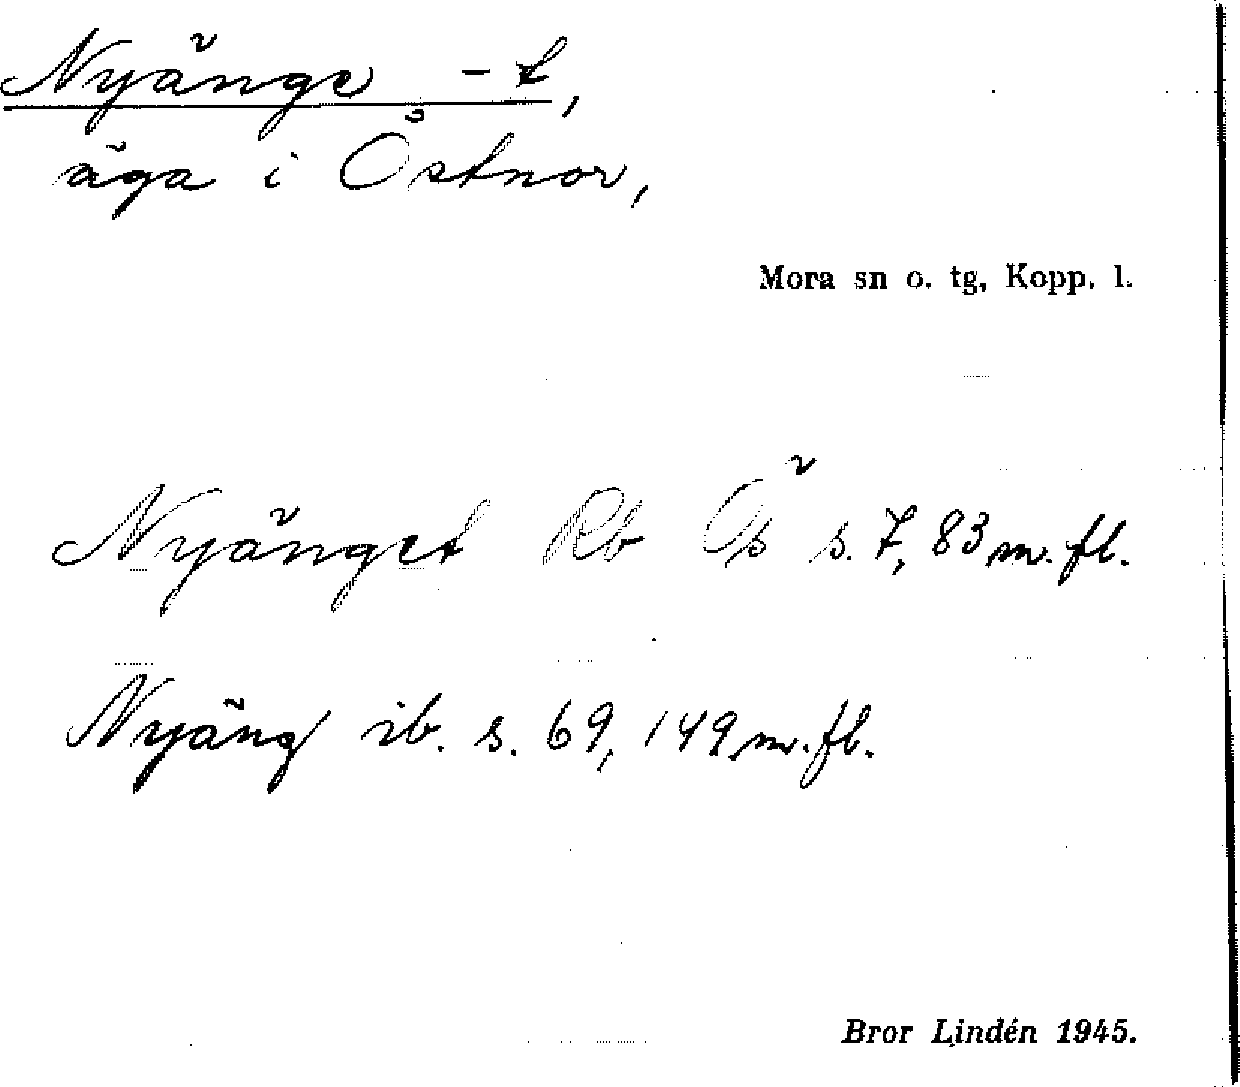 Nyänge -t,
äga i Östnor,
Mora sn o. tg, Kopp. l.
Nyänget Rb Ös s. 7, 83 m. fl.
Nyäng ib. s. 69, 149 m. fl.
Bror Lindén 1945.